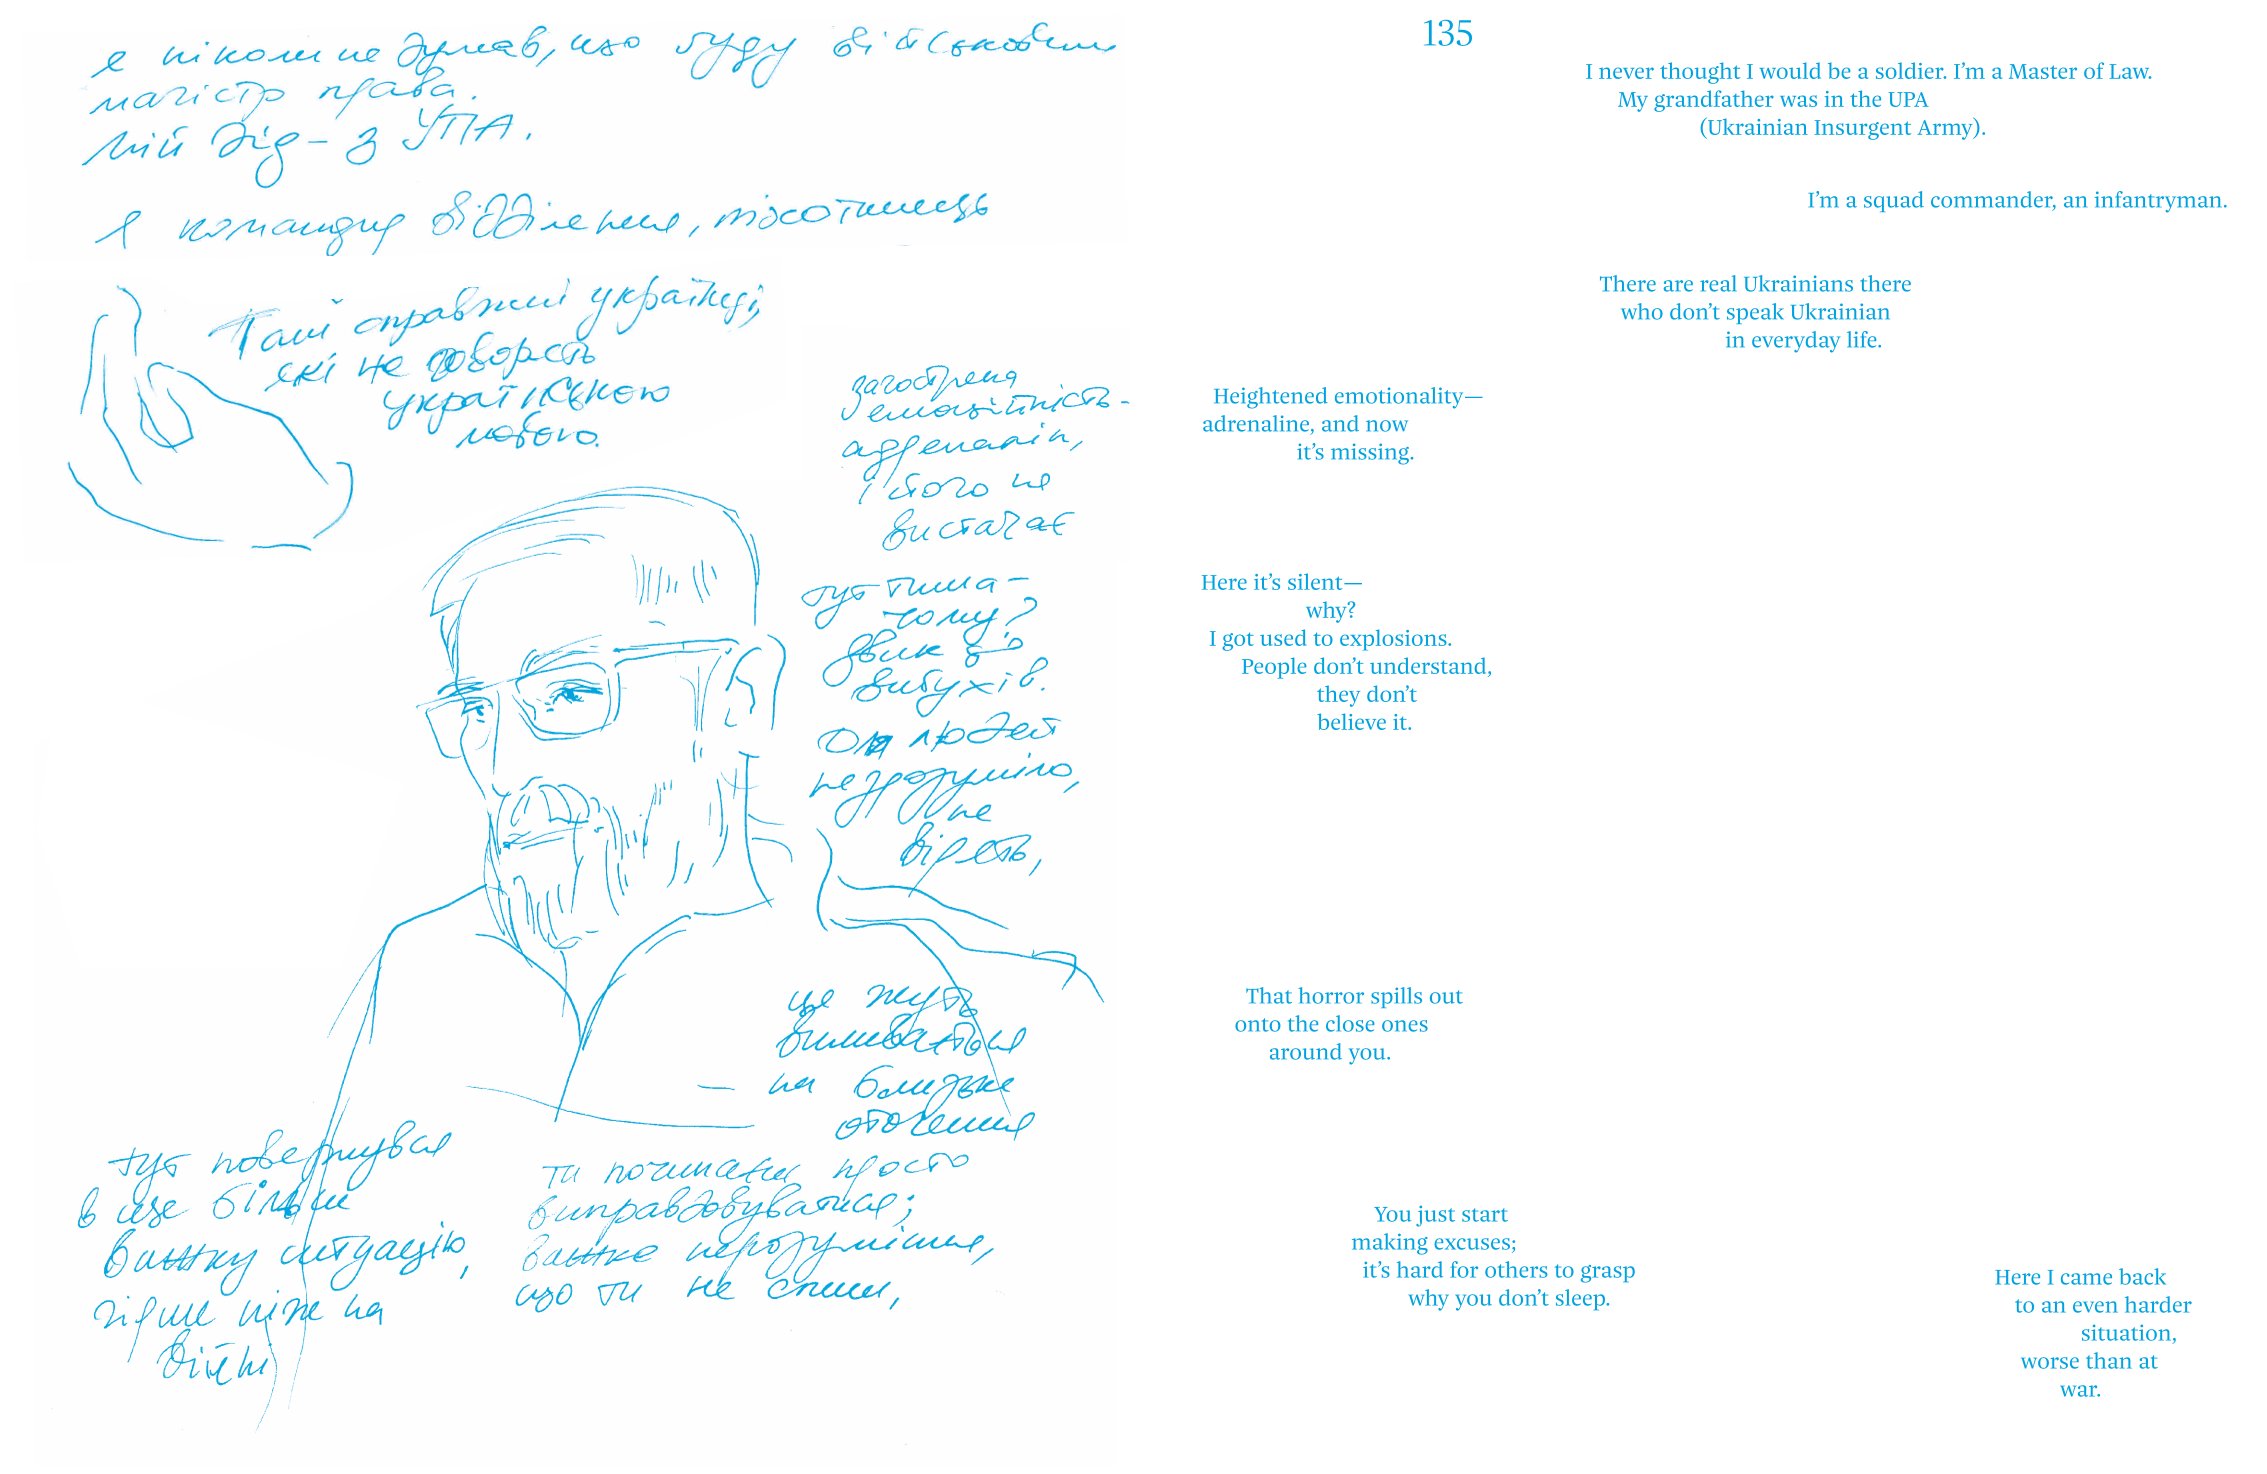 я ніколи не думав, що буду військовим
магістр права.
Мій дід – з УПА.
я командир відділення, піхотинець
Там справжні українці,
які не говорять
українською
мовою.
загострена
емоційність -
адреналін,
і його не
вистачає
тут тиша –
чому?
звик до
вибухів.
Для людей
незрозуміло,
не
вірять,
це жуть
виливається
на близьке
оточення
ти починаєш просто
виправдовуватися;
важке нерозуміння,
що ти не спиш,
тут повернувся
в ще більш
важку ситуацію,
гірше ніж на
війні
135
I never thought I would be a soldier. I’m a Master of Law.
My grandfather was in the UPA
(Ukrainian Insurgent Army).
I’m a squad commander, an infantryman.
There are real Ukrainians there
who don’t speak Ukrainian
in everyday life.
Heightened emotionality—
adrenaline, and now
it’s missing.
Here it’s silent—
why?
I got used to explosions.
People don’t understand,
they don’t
believe it.
That horror spills out
onto the close ones
around you.
You just start
making excuses;
it’s hard for others to grasp
why you don’t sleep.
Here I came back
to an even harder
situation,
worse than at
war.